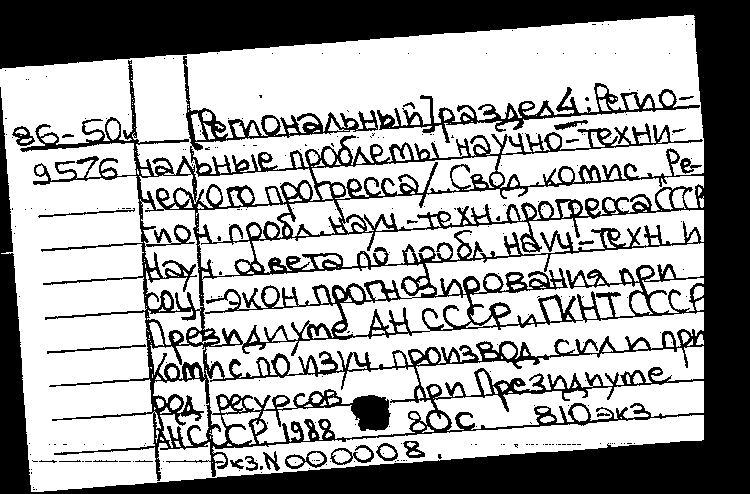 86-50к [Региональный] раздел 4: Регио-
9576 нальные проблемы научно-техни-
ческого прогресса/. Свод. комис. „Ре-
гион. пробл. науч.-техн. прогресса СССР
Науч. совета по пробл. науч.-техн. и
соц.-экон. прогнозирования при
Президиуме АН СССР и ГКНТ СССР
Комис. по изуч. производ. сил и при
род. ресурсов при Президиуме
АН СССР. 1988. 80 с. 810 экз.
Экз. N 000008.